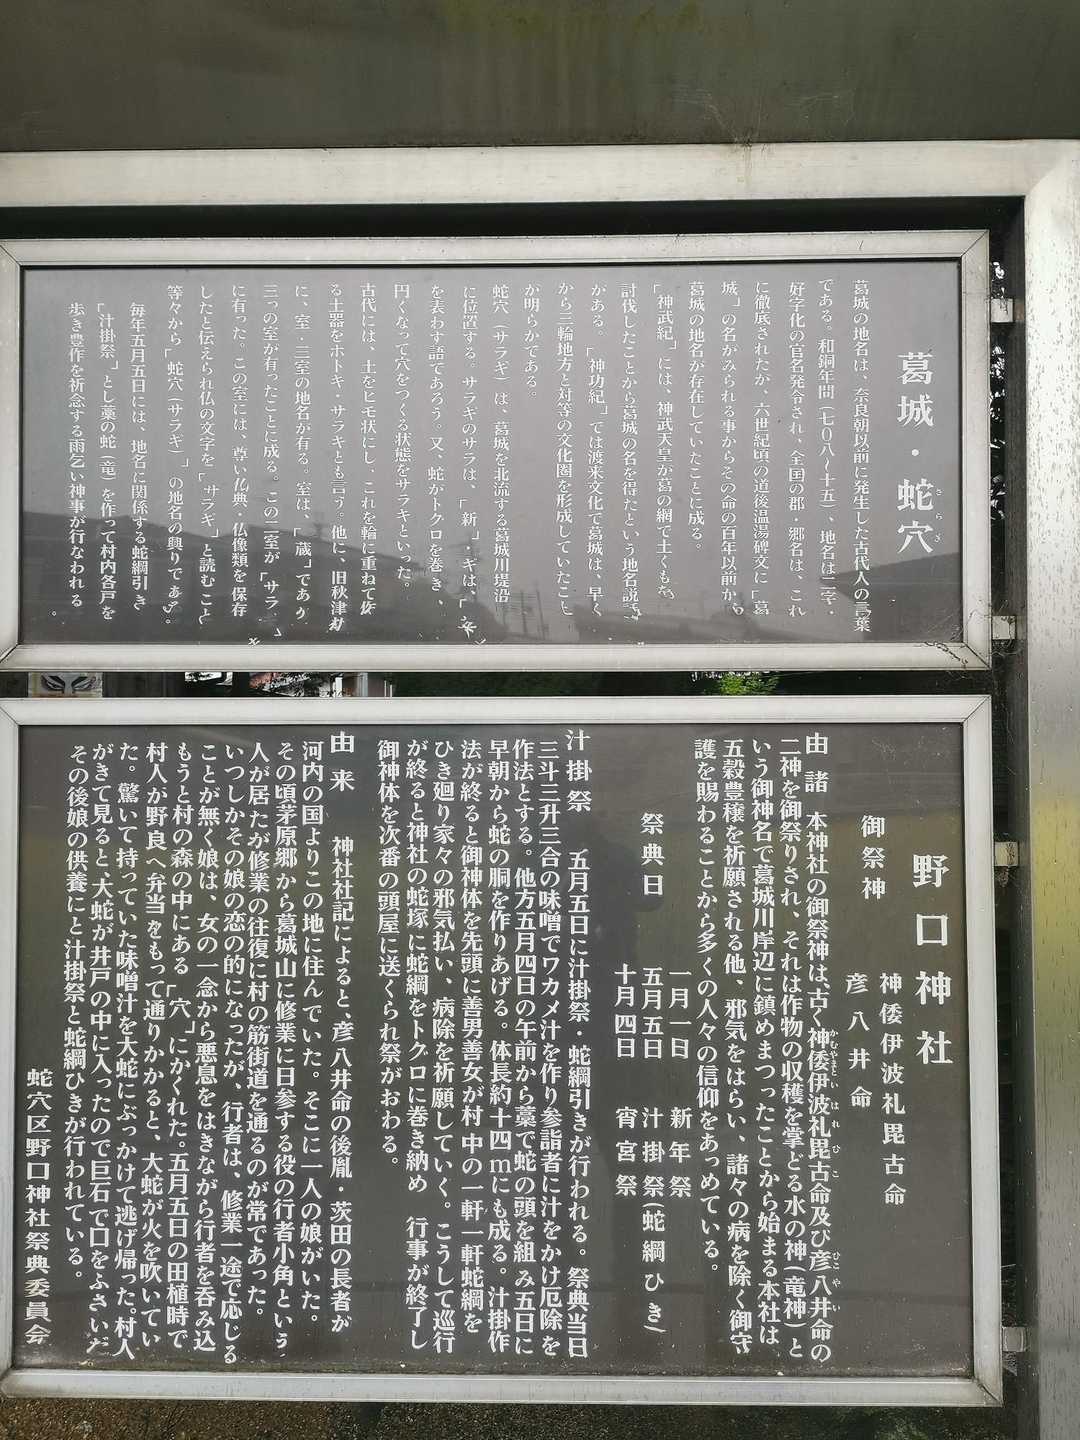 葛城・蛇穴
さらぎ
葛城の地名は、奈良朝以前に発生した古代人の言葉
である。和銅年間(七〇八~十五)、地名は二字・
好字化の官名発令され、全国の郡・郷名は、これ
に徹底されたが、六世紀頃の道後温湯碑文に「葛
城」の名がみられる事からその命の百年以前から
葛城の地名が存在していたことに成る。
「神武紀」には、神武天皇が葛の網で土くもを
討伐したことから葛城の名を得たという地名説話
がある。「神功紀」では渡来文化で葛城は、早く
から三輪地方と対等の文化圏を形成していたこと
が明らかである。
蛇穴(サラギ)は、葛城を北流する葛城川堤沿
に位置する。サラギのサラは、「新」・ギは、「来」
を表わす語であろう。又、蛇がトクロを巻き、
円くなって穴をつくる状態をサラギといった。
古代には、土をヒモ状にし、これを輪に重ねて作
る土器をホトキ・サラキとも言う。他に、旧秋津村
に、室・三室の地名が有る。室は、「蔵」であり
三つの室が有ったことに成る。この二室が「サラキ」
に有った。この室には、尊い仏典・仏像類を保存
したと伝えられ仏の文字を「サラギ」と読むこと
等々から「蛇穴(サラギ)」の地名の興りである。
毎年五月五日には、地名に関係する蛇綱引き
「汁掛祭」とし藁の蛇(竜)を作って村内各戸を
歩き豊作を祈念する雨乞い神事が行なわれる。
野口神社
御祭神
神倭伊波礼毘古命
彦八井命
由諸 本神社の御祭神は、古く神倭伊波礼毘古命及び彦八井命の
かむやまといはれひこ ひこやい
二神を御祭りされ、それは作物の収穫を掌どる水の神(竜神)と
いう御神名で葛城川岸辺に鎮めまつったことから始まる本社は、
五穀豊穣を祈願される他、邪気をはらい、諸々の病を除く御守
護を賜わることから多くの人々の信仰をあつめている。
祭典日
一月一日 新年祭
五月五日 汁掛祭(蛇綱ひき)
十月四日 宵宮祭
汁掛祭 五月五日に汁掛祭・蛇綱引きが行われる。祭典当日
三斗三升三合の味噌でワカメ汁を作り参詣者に汁をかけ厄除を
作法とする。他方五月四日の午前から藁で蛇の頭を組み五日に
早朝から蛇の胴を作りあげる。体長約十四mにも成る。汁掛作
法が終ると御神体を先頭に善男善女が村中の一軒一軒蛇綱を
ひき廻り家々の邪気払い、病除を祈願していく。こうして巡行
が終ると神社の蛇塚に蛇綱をトグロに巻き納め 行事が終了し
御神体を次番の頭屋に送くられ祭がおわる。
由来 神社社記によると、彦八井命の後胤・茨田の長者が
河内の国よりこの地に住んでいた。そこに一人の娘がいた。
その頃茅原郷から葛城山に修業に日参する役の行者小角という
人が居たが修業の往復に村の筋街道を通るのが常であった。
いつしかその娘の恋の的になったが、行者は、修業一途で応じる
ことが無く娘は、女の一念から悪息をはきながら行者を呑み込
もうと村の森の中にある「穴」にかくれた。五月五日の田植時で
村人が野良へ弁当をもって通りかかると、大蛇が火を吹いてい
た。驚いて持っていた味噌汁を大蛇にぶっかけて逃げ帰った。村人
がきて見ると、大蛇が井戸の中に入ったので巨石で口をふさいだ
その後娘の供養にと汁掛祭と蛇綱ひきが行われている。
蛇穴区野口神社祭典委員会